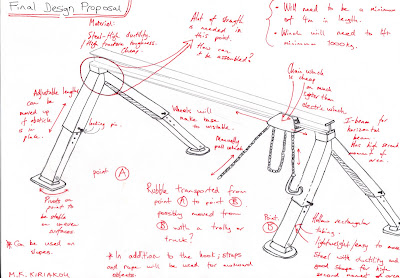 Final Design Proposal
Material:
Steel-High ductility.
/High fracture toughness.
Cheap
A lot of strength
is needed in
this point.
How can
it be assembled?
• Will need to be a minimum
of 4m in length.
• Winch will need to lift
minimum 1000kg.
Chain winch is
cheap
much
lighter than
electric winch.
Adjustable lengths
can be
moved up
if obstacle
is in
place.
locking pin.
Wheels will
make crane
un-stable.
Manually
pull winch
I-beam for
horizontal
beam.
Has high second
moment of
area.
point A
Pivots on
point to
be stable
on uneven
surfaces
Rubble transported from
point A to point B
possibly moved from
B with a trolley or
truck?
Point B
Hollow rectangular
tubing.
lightweight/easy to move
Steel with ductility and
good shape for high
second moment of area.
* Can be used on
slopes.
* In addition to the hook; straps
and rope will be used for awkward
objects.
M.K. KIRIAKOU